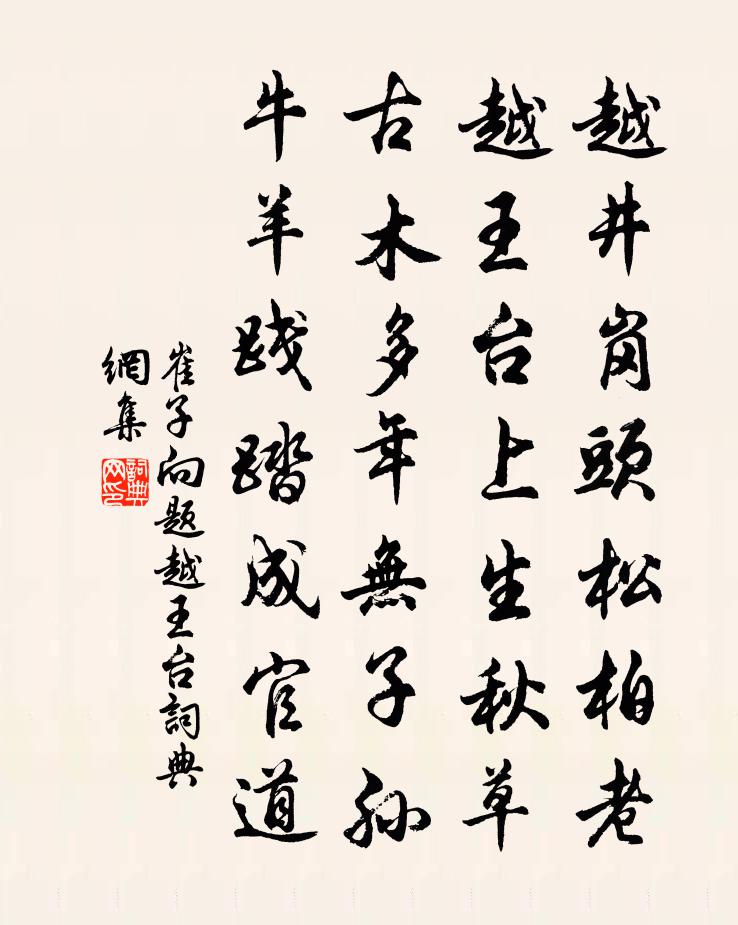 越井岗頭松柏老
越王台上生秋草
古木多年無子孙
牛羊践踏成官道
崔子向题越王台詞典
網集
詞典网印